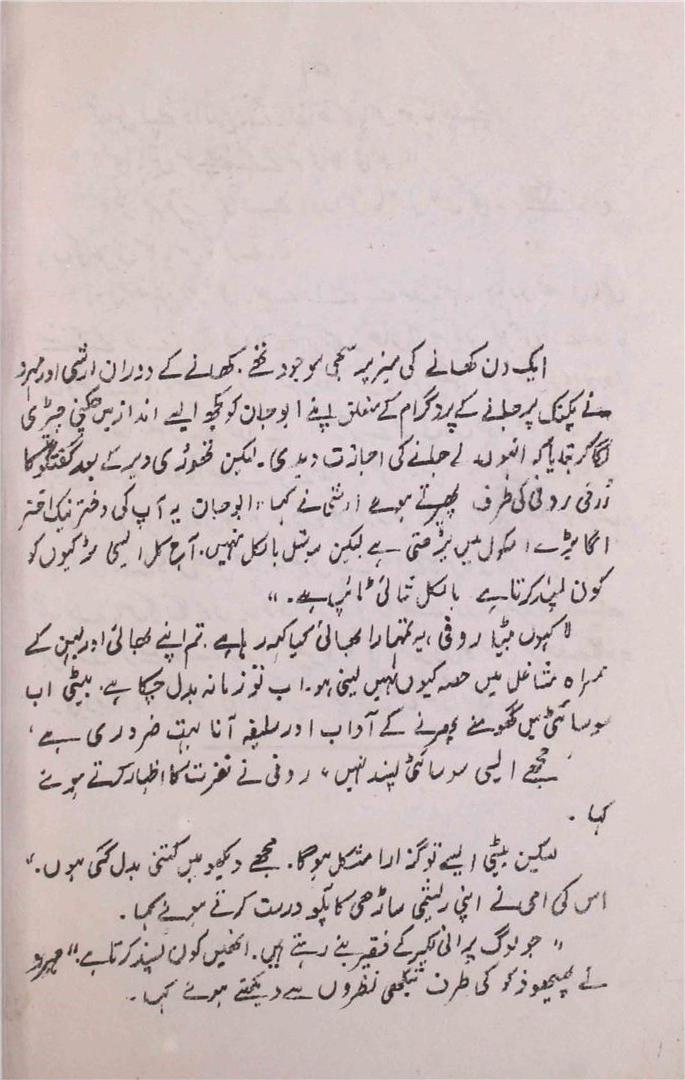 ایک دن کھانے کی میز پر سبھی موجود تھے۔ کھانے کے دوران ارشی اور مہرو
نے پکنک پر جانے کے پروگرام کے متعلق اپنے ابو جان کو کچھ ایسے انداز میں چکنی چپڑی
لگا کر بتایا کہ انہوں نے جانے کی اجازت دیدی۔ لیکن تھوڑی دیر کے بعد گفتگو کا
رُخ روفی کی طرف پھیرتے ہوئے ارشی نے کہا "ابو جان یہ آپ کی دختر نیک اختر
اگاپڑے اسکول میں پڑھتی ہے لیکن سوشل بالکل نہیں۔ آج کل ایسی لڑکیوں کو
کون پسند کرتا ہے بالکل ٹائپ ہے۔"
"کیوں بیٹیا روفی، یہ تمہارا بھائی کیا کہہ رہا ہے۔ تم اپنے بھائی اور بہن کے
ہمراہ مشاغل میں حصہ کیوں نہیں لیتی ہو۔ اب تو زمانہ بدل چکا ہے۔ بیٹی اب
سوسائٹی میں گھومنے پھرنے کے آداب اور سلیقہ آنا بہت ضروری ہے،
'مجھے ایسی سوسائٹی پسند نہیں، روفی نے نفرت کا اظہار کرتے ہوئے
کہا۔
لیکن بیٹی ایسے تو گزارا مشکل ہوگا۔ مجھے دیکھو میں کتنی بدل گئی ہوں۔"
اس کی امی نے اپنی ریشمی ساڑھی کا پلّو درست کرتے ہوئے کہا۔
"جو لوگ پرانی لکیر کے فقیر بنے رہتے ہیں۔ انھیں کون پسند کرتا ہے۔" مہرو
نے پھپھو کی طرف تیکھی نظروں سے دیکھتے ہوئے کہا۔